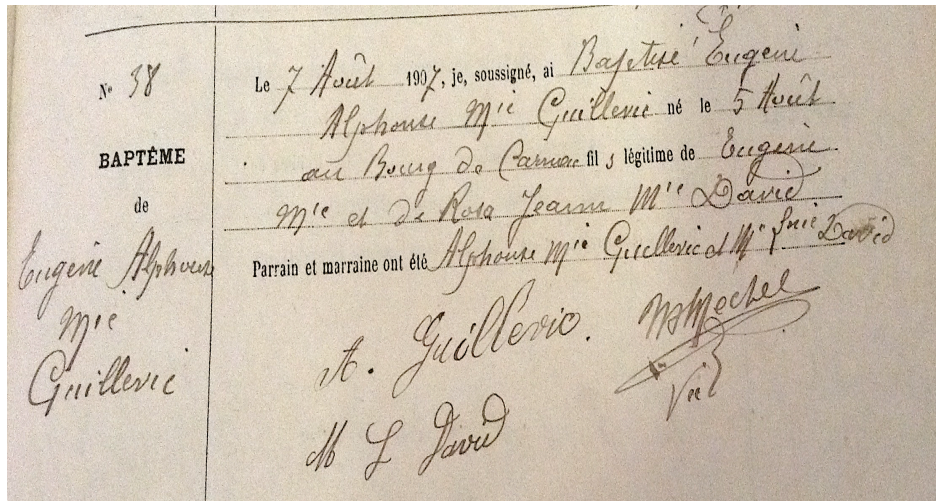 N° 38
BAPTÊME
de
Eugène Alphonse
Mie
Guillevic
Le 7 Août 1907, je, soussigné, ai Baptisé Eugène
Alphonse Mie Guillevic né le 5 Août
au Bourg de Carnac fil s légitime de Eugène
Mie et de Rosa Jeanne Mie David
Parrain et marraine ont été Alphonse Mie Guillevic et Mie David
A. Guillevic.
M L David